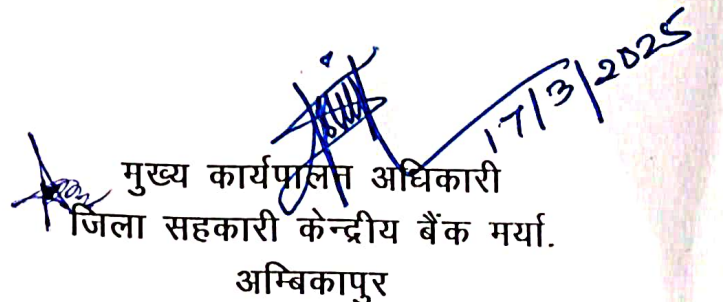 17/3/2025
मुख्य कार्यपालन अधिकारी
जिला सहकारी केन्द्रीय बैंक मर्या.
अम्बिकापुर